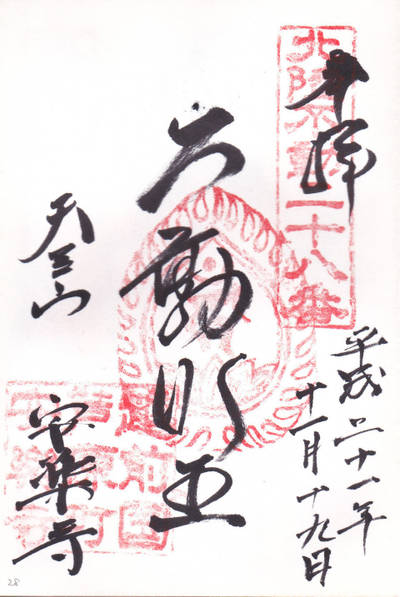 奉拝
北陸不動二十八番
平成二十一年
十一月十九日
不動明王
安楽寺
28